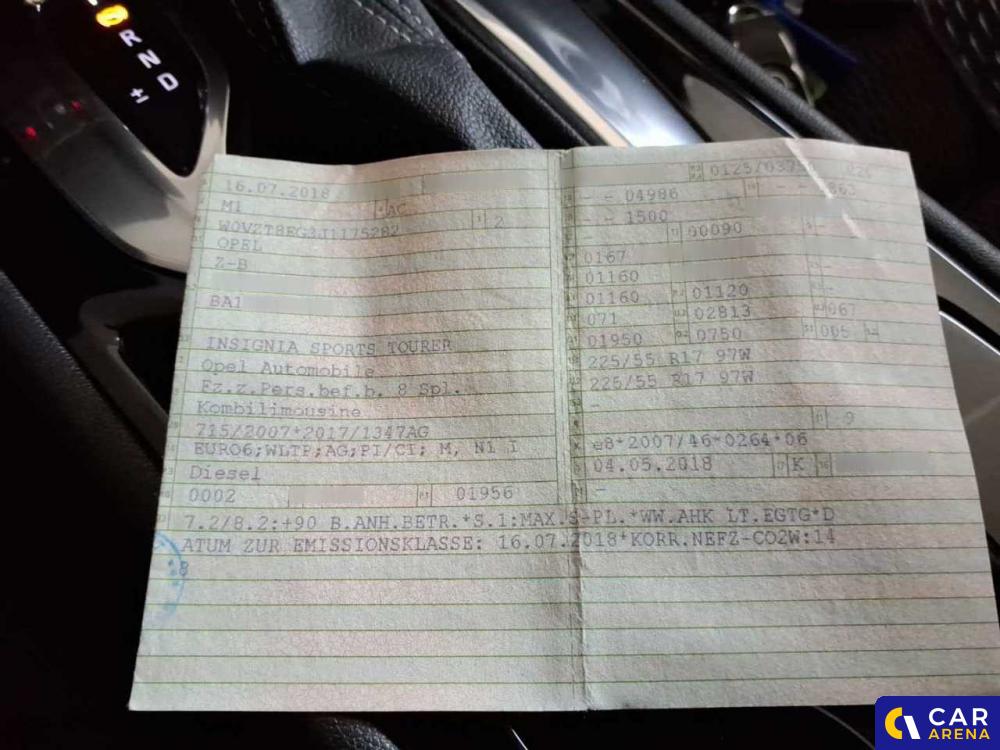 R
N
D
±
16.07.2018
0125/037
M1
AC
- - 04986
- - 863
W0VZT8EG3J1175282
2
- - 1500
OPEL
00090
Z-B
0167
01160
BA1
01160
01120
071
02813
067
INSIGNIA SPORTS TOURER
01950
0750
005
Opel Automobile
225/55 R17 97W
Fz.z.Pers.bef.b. 8 Spl.
225/55 R17 97W
Kombilimousine
-
715/2007*2017/1347AG
9
EURO6;WLTP;AG;PI/CI; M, N1 I
e8*2007/46*0264*06
Diesel
04.05.2018
K
0002
01956
-
7.2/8.2:+90 B.ANH.BETR.*S.1:MAX.5-PL.*WW.AHK LT.EGTG*D
ATUM ZUR EMISSIONSKLASSE: 16.07.2018*KORR.NEFZ-CO2W:14
8
CAR
ARENA